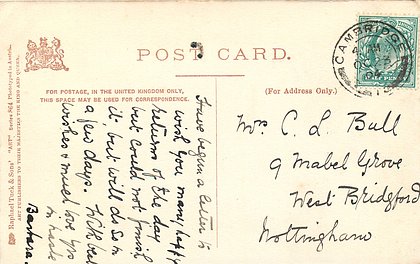 POST CARD.
FOR POSTAGE, IN THE UNITED KINGDOM ONLY,
THIS SPACE MAY BE USED FOR CORRESPONDENCE.
(For Address Only.)
Have begun a letter to
wish you many happy
returns of the day
but could not finish
it. but will do so in
a few days. With best
wishes & much love yrs
in haste
Barbara
Mrs C. L. Bull
9 Mabel Grove
West Bridgford
Nottingham
CAMBRIDGE
Raphael Tuck & Sons' "ART" Series
ART PUBLISHERS TO THEIR MAJESTIES THE KING AND QUEEN.